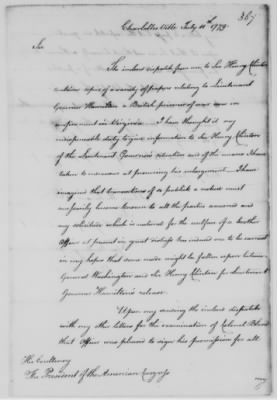 367
Charlottes Ville July 11th 1779.
Sir
The inclosed dispatch from me to Sir Henry Clinton
contains copies of a variety of papers relating to Lieutenant
Governor Hamilton a British prisoner of war in con
finement in Virginia. I have thought it my
indispensible duty to give information to Sir Henry Clinton
of the Lieutenant Governor's situation and of the means I have
taken to endeavour at procuring his enlargement. I have
imagined that transactions of so publick a nature must
necessarily become known to all the parties concerned and
my solicitude which is natural for the welfare of a brother
Officer at present in great distress has induced me to be earnest
in my hopes that some mode might be fallen upon between
General Washington and Sir Henry Clinton for Lieutenant
Governor Hamilton's release.
Upon my sending the inclosed dispatch
with my other letters for the examination of Colonel Bland
that Officer was pleased to sign his permission for all
my
His Excellency
The President of the American Congress